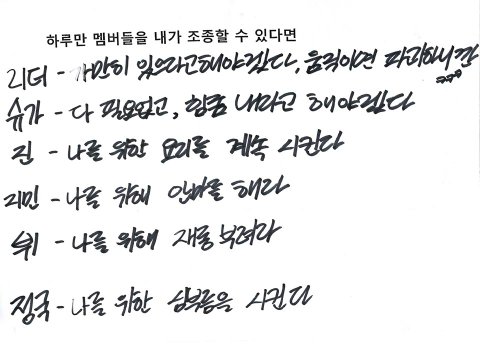 하루만 멤버들을 내가 조종할 수 있다면
리더 - 가만히 있으라고해야겠다, 움직이면 파괴하니깐
ㅋㅋㅋ
슈가 - 다 필요없고, 힘좀 내라고 해야겠다
진 - 나를 위한 요리를 계속 시킨다
지민 - 나를 위해 안마를 해라
뷔 - 나를 위해 재롱부려라
정국 - 나를 위한 심부름을 시킨다